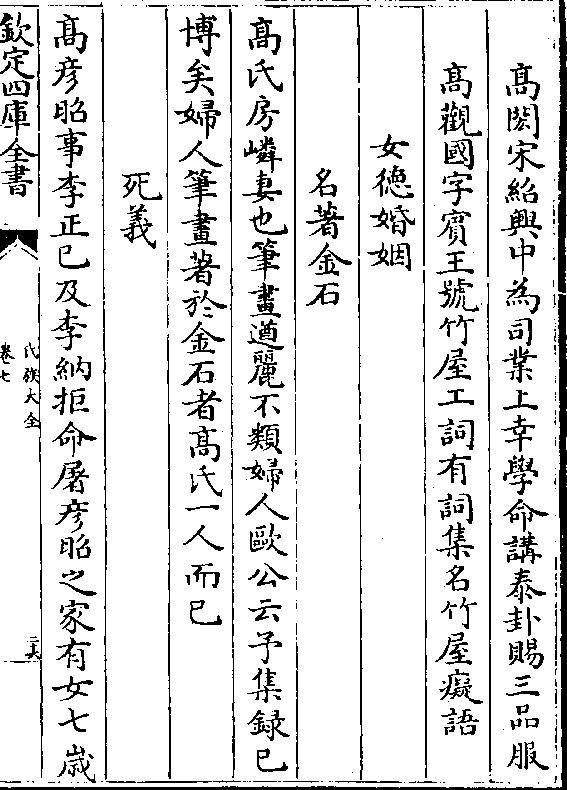 髙閎宋紹興中為司業上幸學命講泰卦賜三品服
髙觀國字賓王號竹屋工詞有詞集名竹屋癡語
女徳婚姻
名著金石
髙氏房嶙妻也筆畫遒麗不類婦人歐公云予集録已
博矣婦人筆畫著於金石者髙氏一人而已
死義
髙彦昭事李正已及李納拒命屠彦昭之家有女七歳
欽定四庫全書
氏族大全
卷七
二六